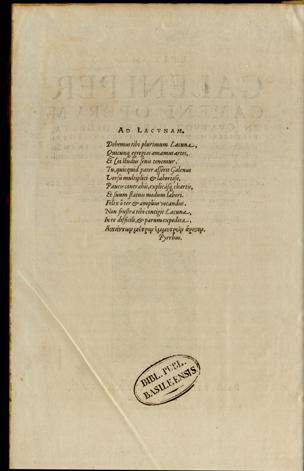 AD LACVNAM.
Debemus tibi plurimum Lacuna,
Quicunq; egregias amamus artes,
& studiis tenemur.
Tu, quicquid pater asserit Galenus
Versu multiplici & laborioso,
Paucis contrahis, explicasq; chartis,
Et suum statuis modum labori.
Felix ô ter & amplius vocandus.
Non frustra tibi contigit Lacuna,
In re difficili, & parum expedita,
Pyrrhus.
BIBL. PUBL.
BASILEENSIS